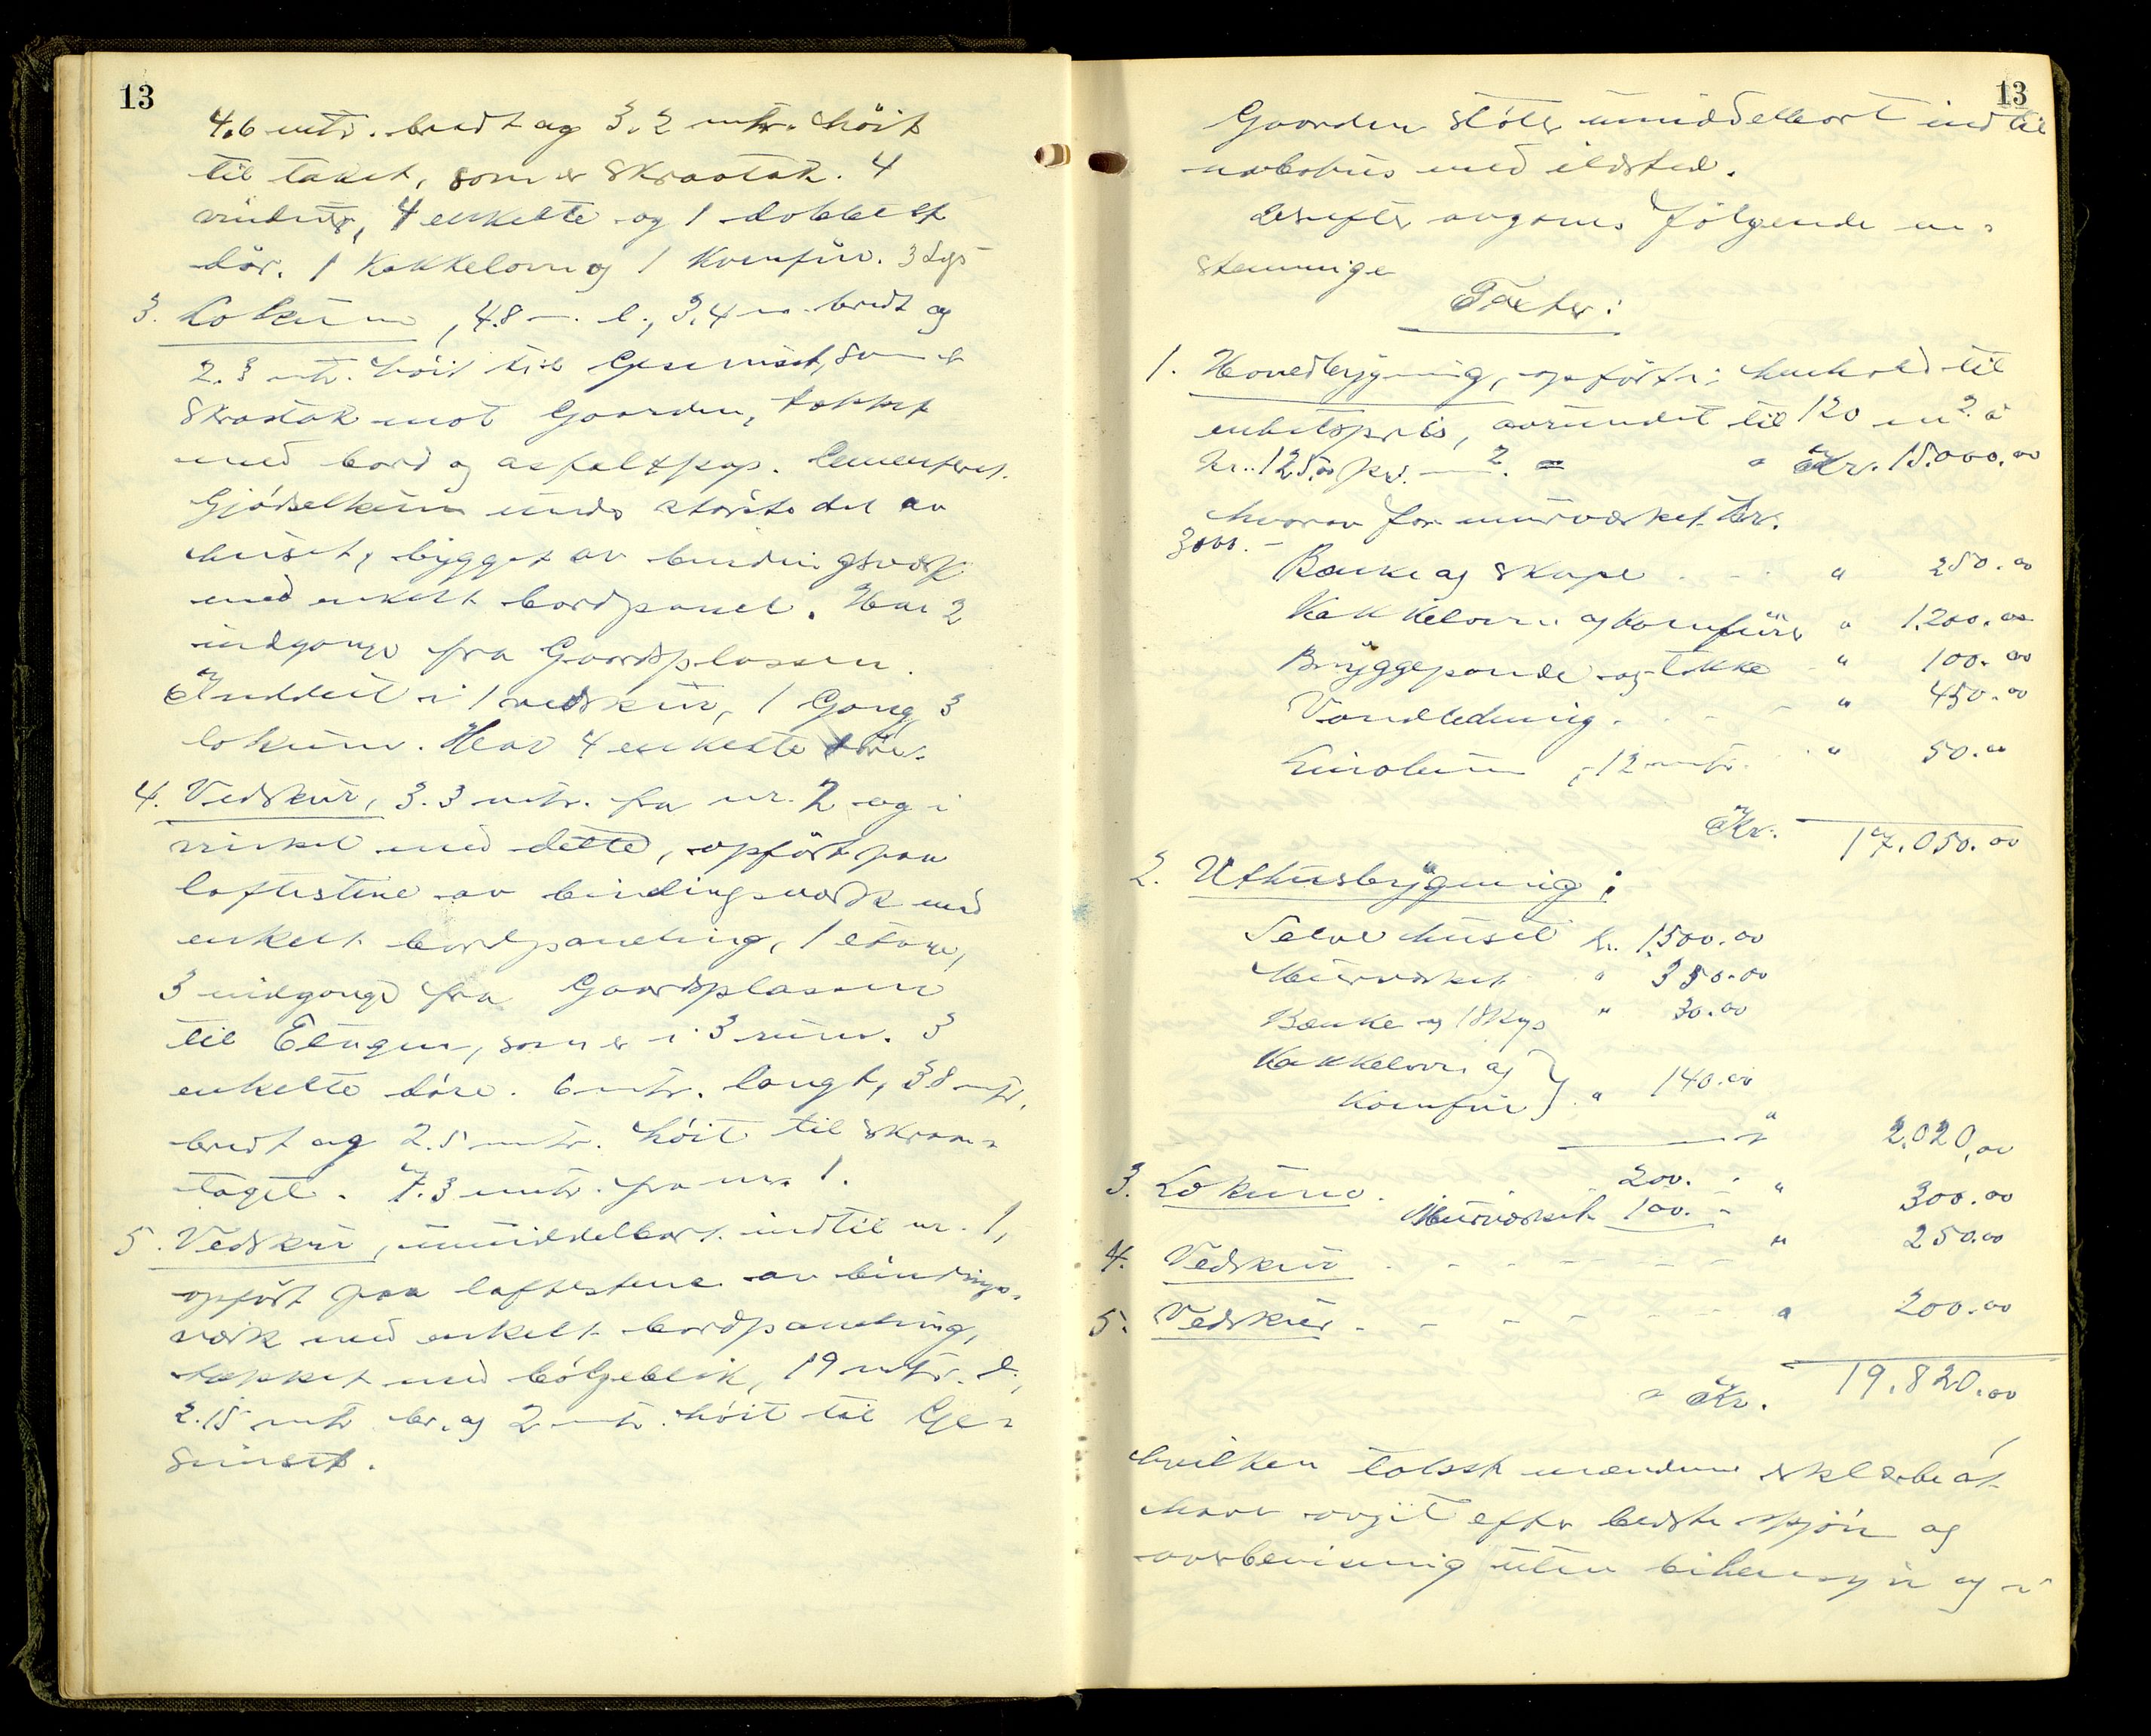 13
4.6 mtr. bredt og 3.2 mtr. höit
til taket, som er Skraatak. 4
vinduer, 4 enkelte og 1 dobbelt
dör. 1 Kakkelovn og 1 Komfür. 3 Lys
3. Lokum, 4.8 m. l., 3.4 m. bredt og
2.3 mtr. höit til Gesimset, som er
Skraatak mot Gaarden, tækket
med bord og asfaltpap. Cementert
Gjödselkum under störste del av
huset, bygget av bindingsverk
med enkelt bordpanel. Har 2
indgange fra Gaardsplassen.
Inddelt i 1 vedskur, 1 Gang, 3
lokum. Har 4 enkelte döre.
4. Vedskur, 3.3 mtr. fra nr. 2 og i
vinkel med dette, opfört paa
löftestene av bindingsverk med
enkelt bordpaneling, 1 etage,
3 indgange fra Gaardsplassen
til Etagen, som er i 3 rum. 3
enkelte döre. 6 mtr. langt, 3.8 mtr.
bredt og 2.5 mtr. höit til skraa-
taget. 7.3 mtr. fra nr. 1.
5. Vedskur, umiddelbart indtil nr. 1,
opfört paa löftestene av bindings-
verk med enkelt bordpaneling,
tækket med bölgeblik, 19 mtr. l.,
2.15 mtr. br. og 2 mtr. höit til Ge-
simset.
13
Gaarden stöter umiddelbart ind til
nabohus med ildsted.
Derefter avgaves följende en-
stemmige
Takster:
1. Hovedbygning, opfört i henhold til
enhetspris, avrundet til 120 m². à
kr. 125.00 pr. m². = " Kr. 15.000.00
hvorav for murværket kr.
3000.-
Bænke og skape " 250.00
Kakkelovne og komfürer " 1.200.00
Bryggepande og lokke " 100.00
Vandledning. " 450.00
Linoleum, 12 mtr. " 50.00
Kr. 17.050.00
2. Uthusbygning:
Selve huset kr. 1500.00
Murværket " 350.00
Bænke og 1 Skap " 30.00
Kakkelovn og
Komfür } " 140.00
" 2.020,00
3. Lokum. 200. - " 300.00
Murværket 100. -
4. Vedskur - - - - - " 250.00
5. Vedskur - - - - - " 200.00
Kr. 19.820.00
hvilken takst mændene erklærte at
have avgit efter bedste skjön og
overbevisning uten bihensyn og i